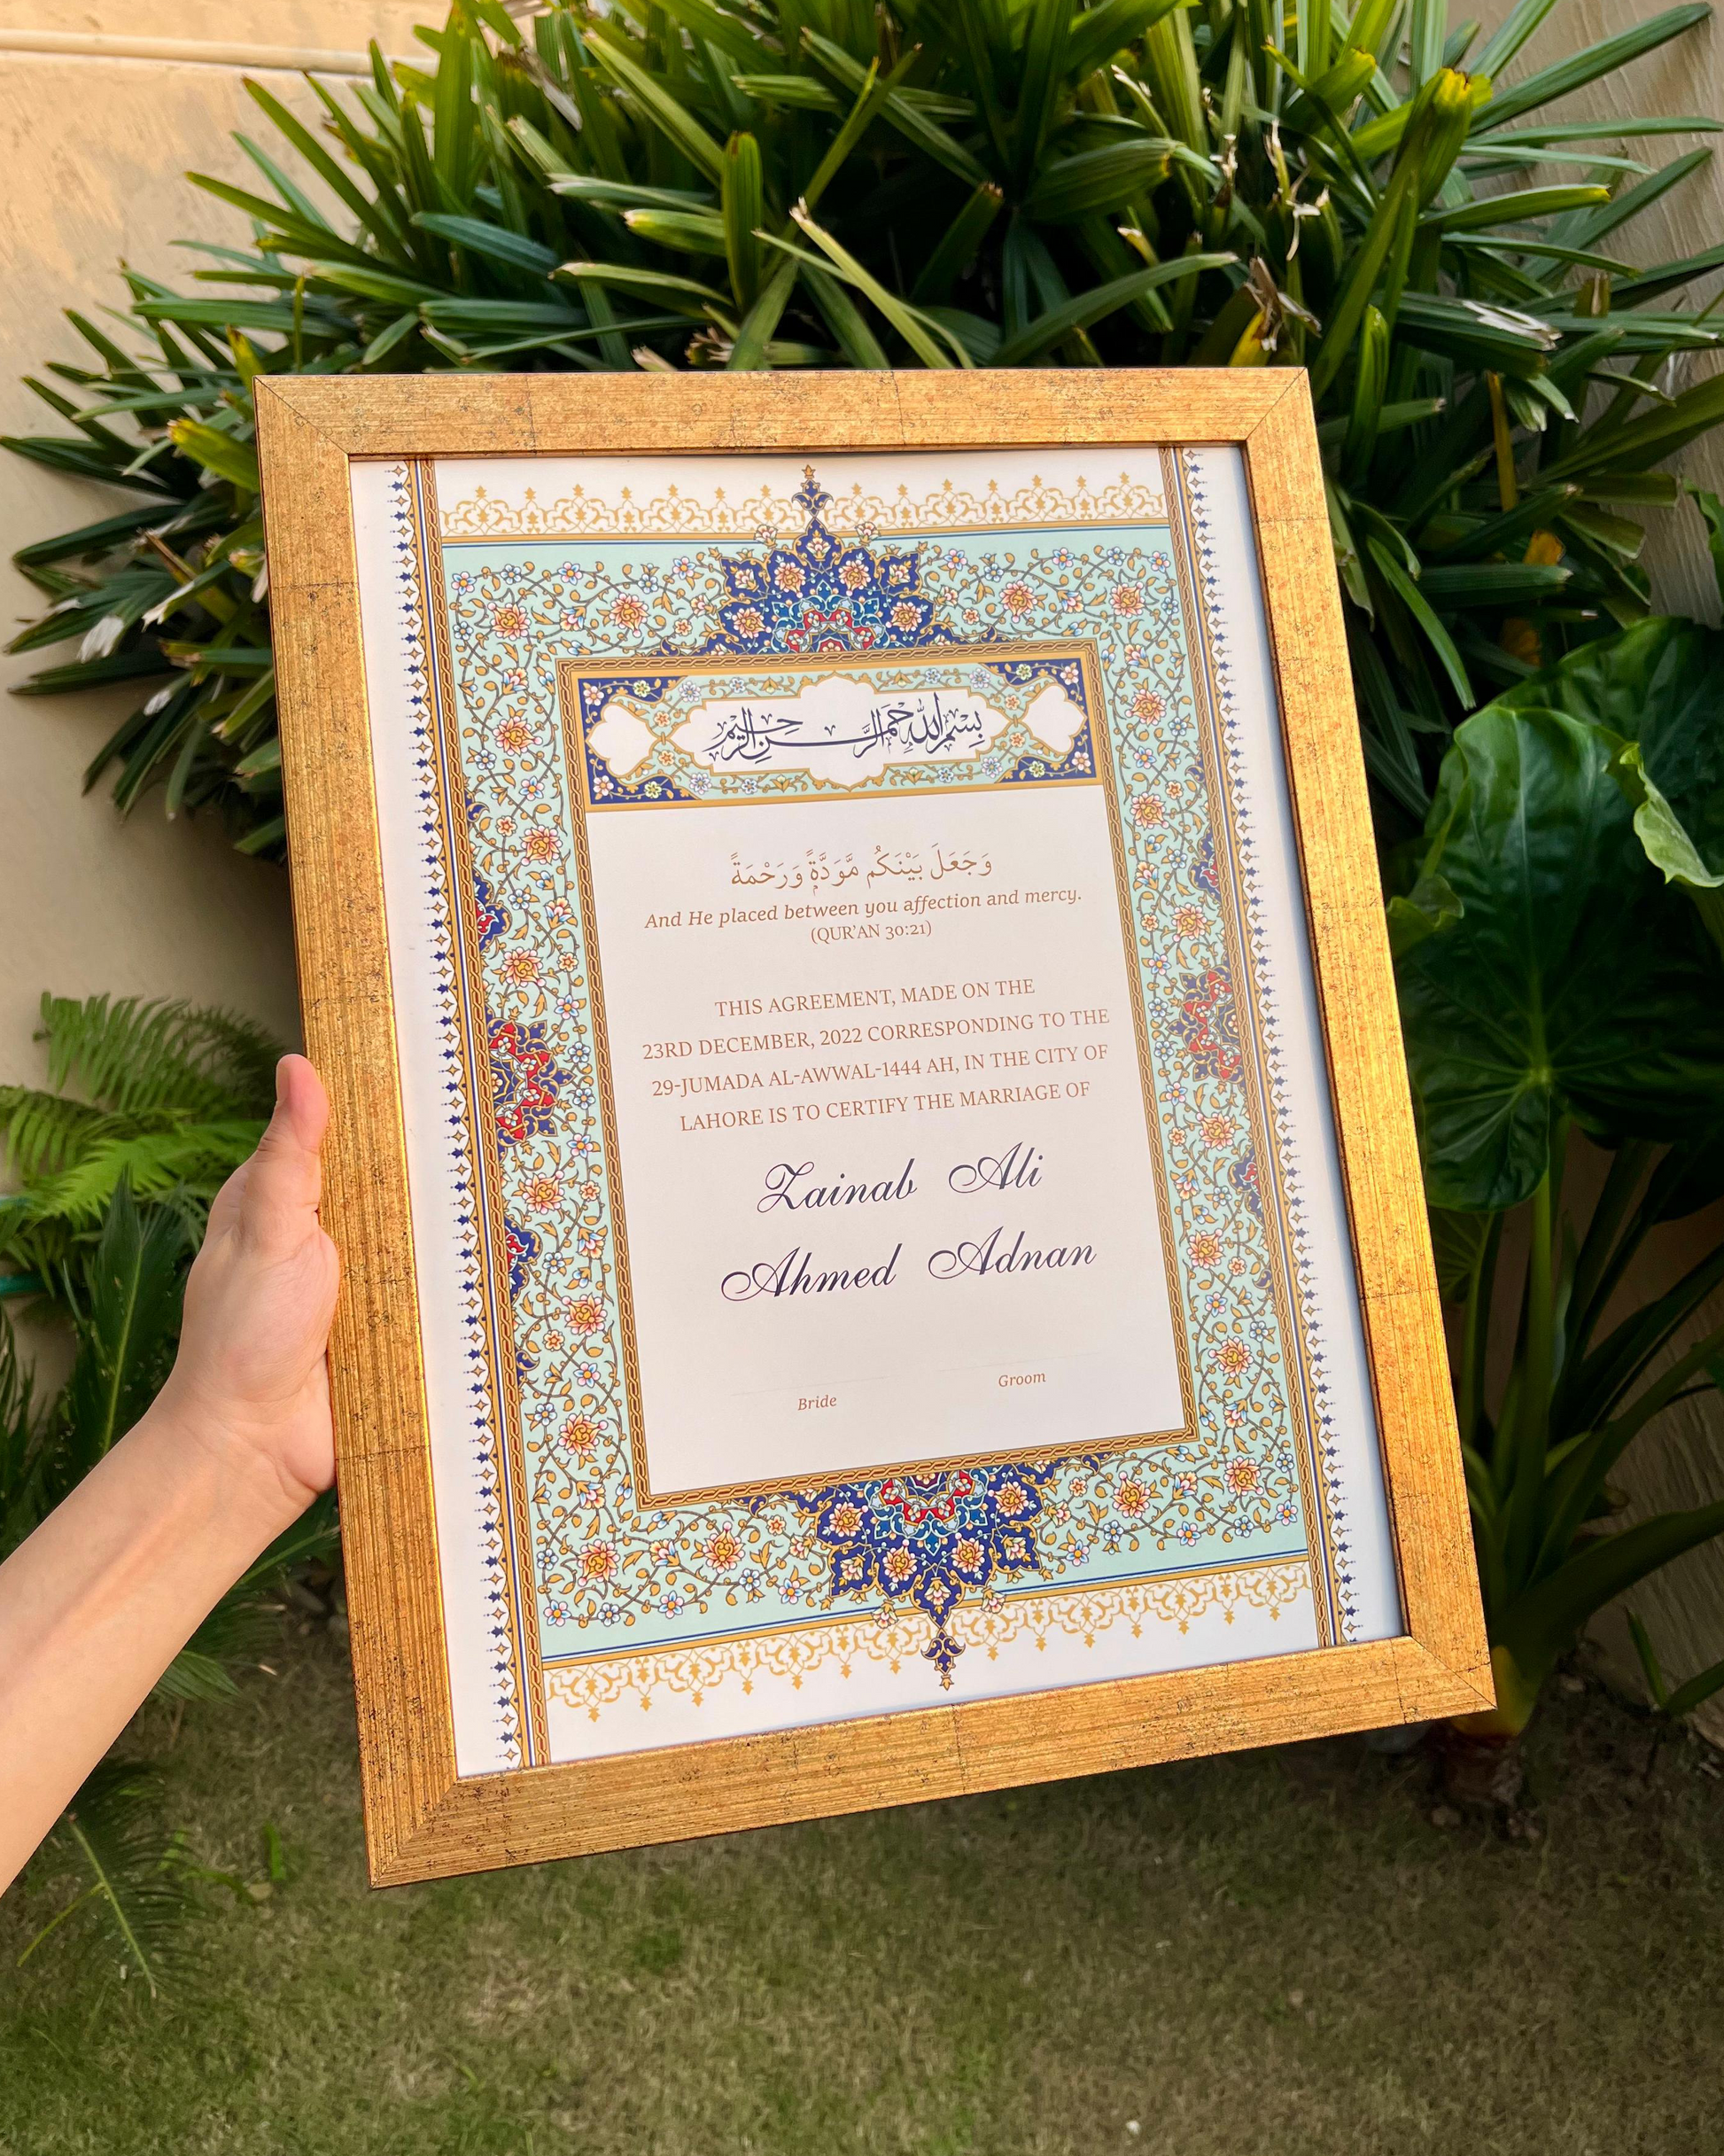 بسم الله الرحمن الرحيم
وَجَعَلَ بَيْنَكُم مَّوَدَّةً وَرَحْمَةً
And He placed between you affection and mercy.
(QUR'AN 30:21)
THIS AGREEMENT, MADE ON THE
23RD DECEMBER, 2022 CORRESPONDING TO THE
29-JUMADA AL-AWWAL-1444 AH, IN THE CITY OF
LAHORE IS TO CERTIFY THE MARRIAGE OF
Zainab Ali
Ahmed Adnan
Bride Groom